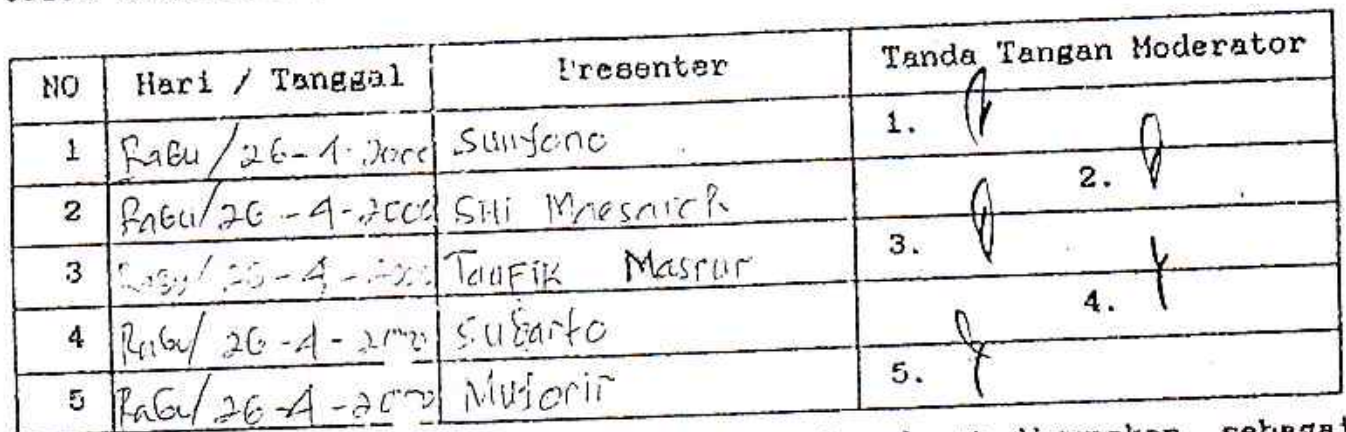 NO Hari / Tanggal Presenter Tanda Tangan Moderator
1 Rabu/26-4-2000 Sunyono 1.
2.
2 Rabu/26-4-2000 Siti
3 Rabu/26-4-2000 Taufik Masrur 3.
4.
4 Rabu/26-4-2000 Subarto
5 Rabu/26-4-2000 5.
sebagai